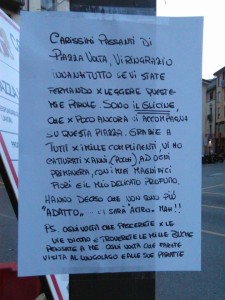 CARISSIMI PASSANTI DI
PIAZZA VOLTA, VI RINGRAZIO
INNANZITUTTO SE VI STATE
FERMANDO X LEGGERE QUESTE
MIE PAROLE. SONO IL GLICINE,
CHE X POCO ANCORA VI ACCOMPAGNA
SU QUESTA PIAZZA. GRAZIE A
TUTTI X I MILLE COMPLIMENTI, VI HO
CATTURATI X ANNI (POCHI), AD OGNI
PRIMAVERA, CON I MIEI MAGNIFICI
FIORI E IL MIO DELICATO PROFUMO.
HANNO DECISO CHE NON SONO PIÙ
"ADATTO" ... SARÀ ALTRO. MAH!!
PS. OGNI VOLTA CHE PERCORRETE X LE
VIE DI COMO E TROVERETE LE MILLE BUCHE
PENSATE A ME OGNI VOLTA CHE FARETE
VISITA AL LUNGOLAGO E ALLE SUE PARATIE